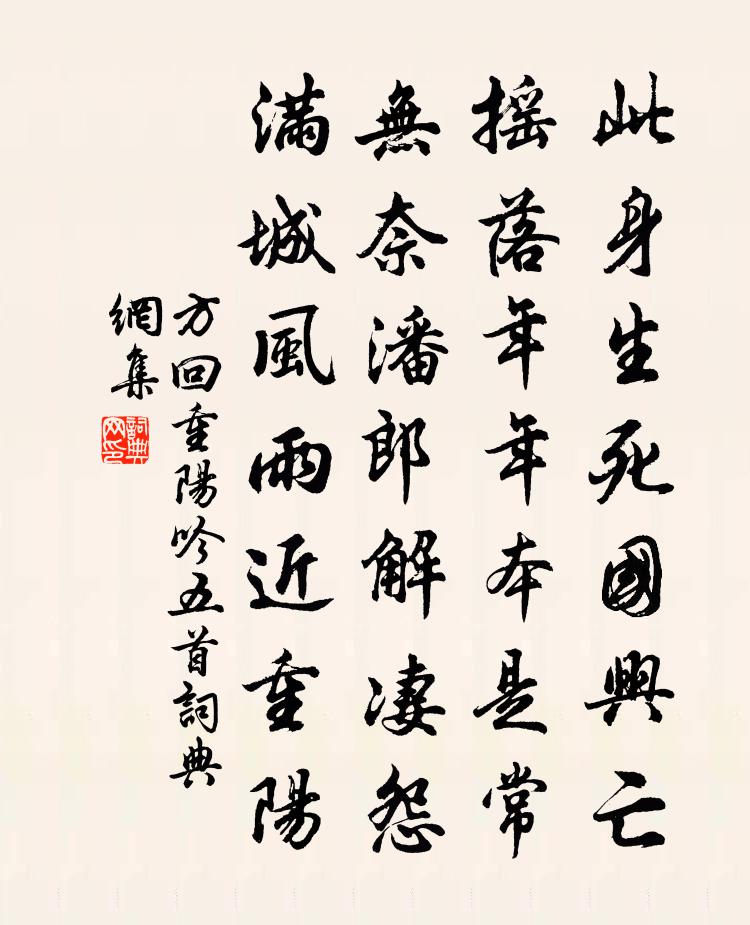 此身生死國興亡
搖落年年本是常
無奈潘郎解凄怨
滿城風雨近重陽
方回重陽吟五首詞典
網集
詞典
网印